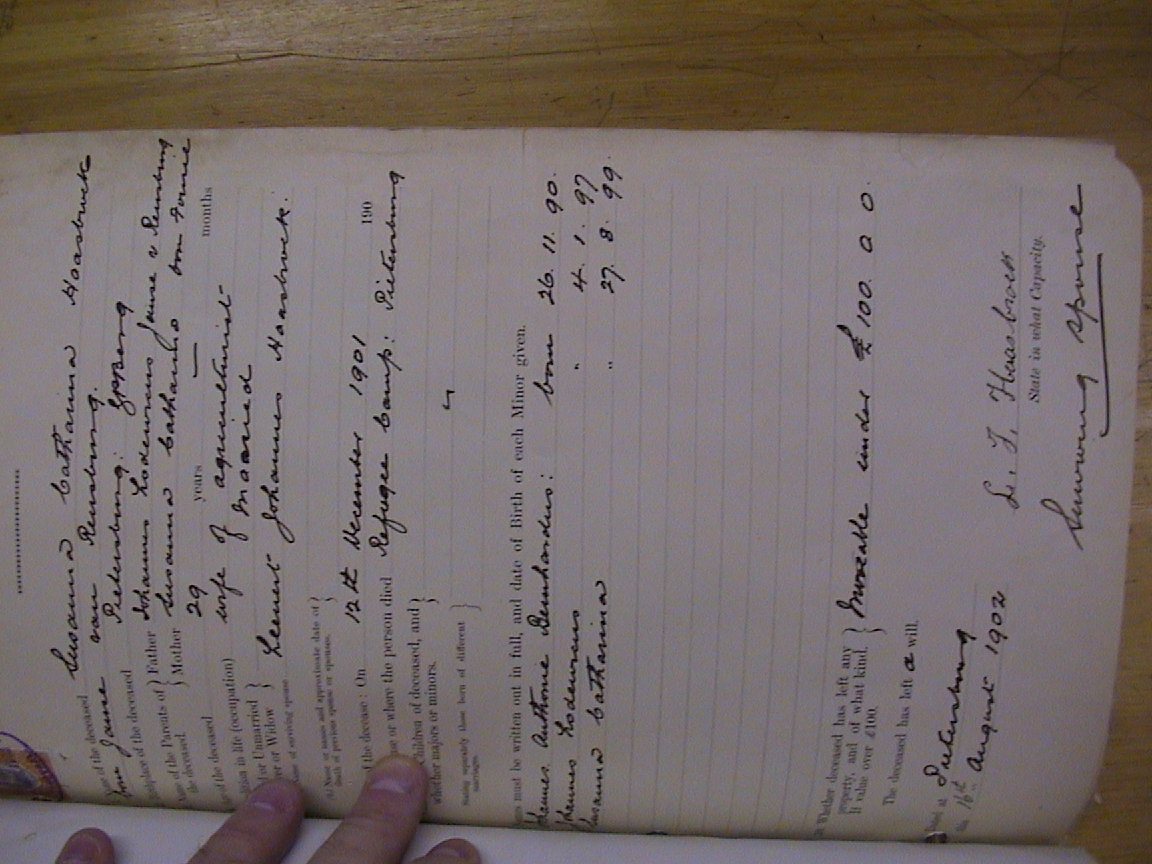 Name of the deceased Susanna Catharina Haasbroek
born Jansen van Rensburg.
Birthplace of the deceased Pietersburg:
Names of the Parents of the deceased } Father Johannes Lodewicus Janse v Rensburg
Mother Susanna Catharina born
Age of the deceased 29 years — months
Condition in life (occupation) wife of agriculturist
Married or Unmarried Widower or Widow } married
Name of surviving spouse Leenert Johannes Haasbroek.
(b) Name or names and approximate date of death of previous spouse or spouses. }
of the decease: On 12th December 1901 190
House or where the person died Refugee Camp: Pietersburg
Children of deceased, and whether majors or minors. }
Stating separately those born of different marriages. }
Names must be written out in full, and date of Birth of each Minor given.
Johannes Anthonie Bernhardus: born 26. 11. 90.
Johannes Lodewicus " 4. 1. 97
Susanna Catharina " 27. 8. 99.
Whether deceased has left any property, and of what kind. If value over £100. } Moveable under £100. 0 0.
The deceased has left a will.
Dated at Pietersburg
the 16th August 1902
L. J. Haasbroek
State in what Capacity.
Surviving spouse